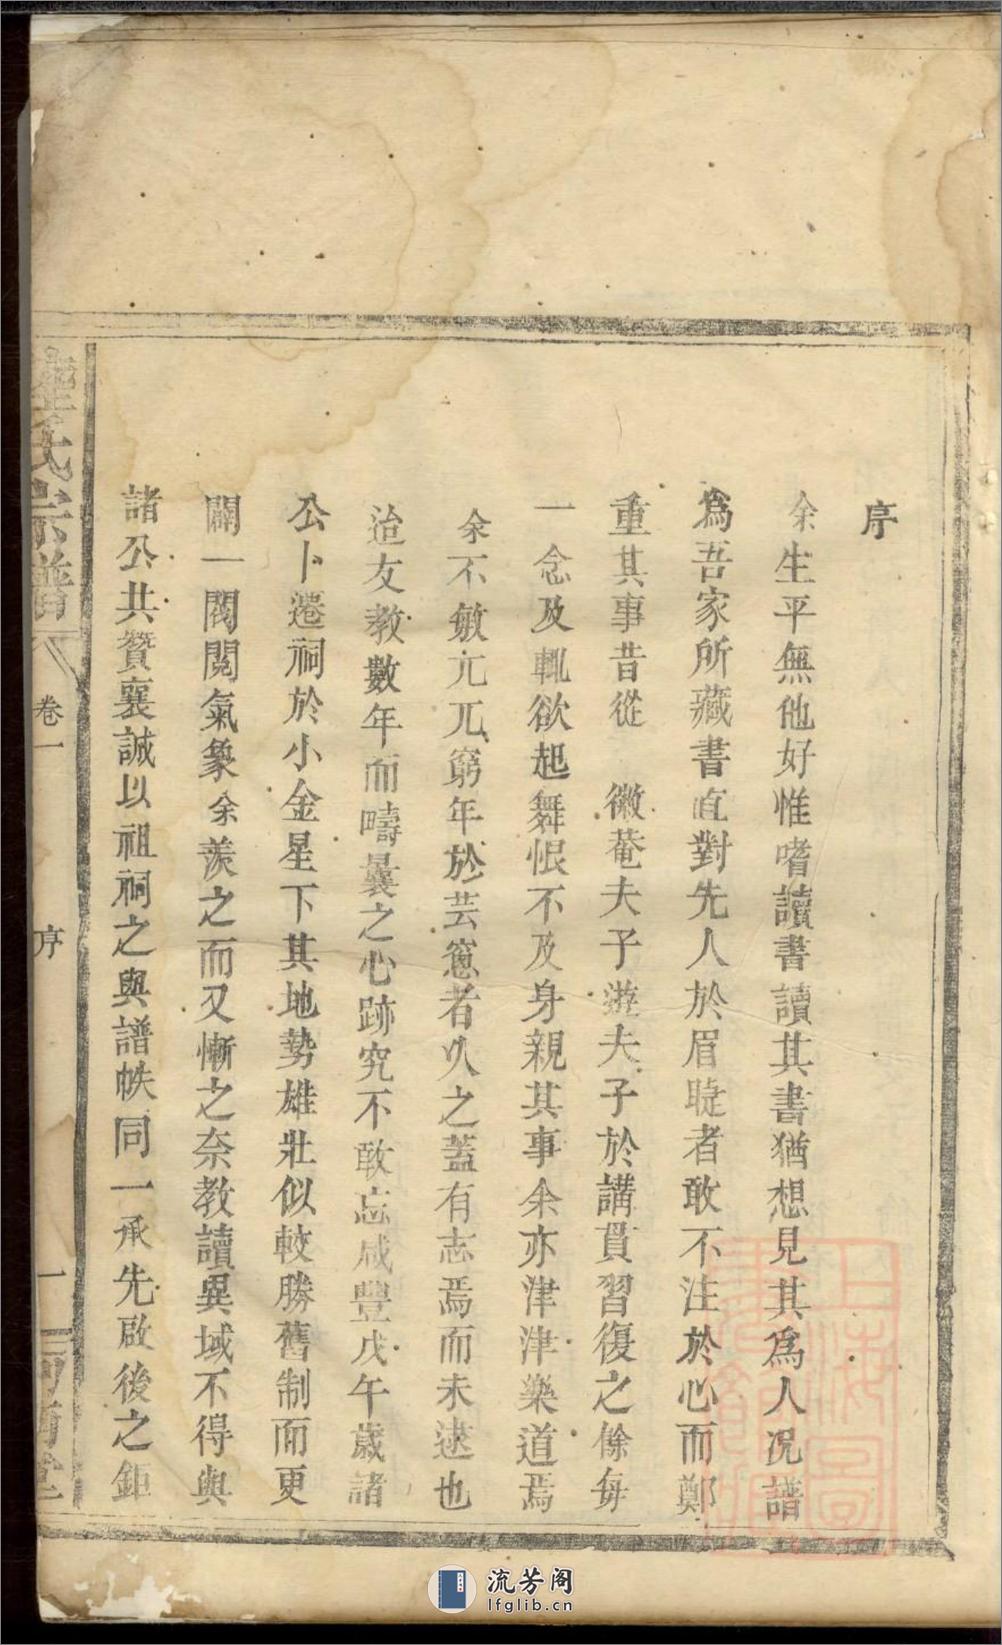 序
余生平無他好惟嗜讀書讀其書猶想見其為人况譜
為吾家所藏書直對先人於眉睫者敢不注於心而鄭
重其事昔從　徽菴夫子遊夫子於講貫習復之餘每
一念及輒欲起舞恨不及身親其事余亦津津樂道焉
余不敏兀兀窮年於芸窻者久之蓋有志焉而未逮也
治友教數年而疇曩之心跡究不敢忘咸豐戊午歲諸
公卜遷祠於小金星下其地勢雄壯似較勝舊制而更
闢一閥閱氣象余羨之而又慚之奈教讀異域不得與
諸公共贊襄誠以祖祠之與譜帙同一承先啟後之鉅
氏宗譜
卷一
序
一
堂
上海圖
流芳阁
lfglib.cn